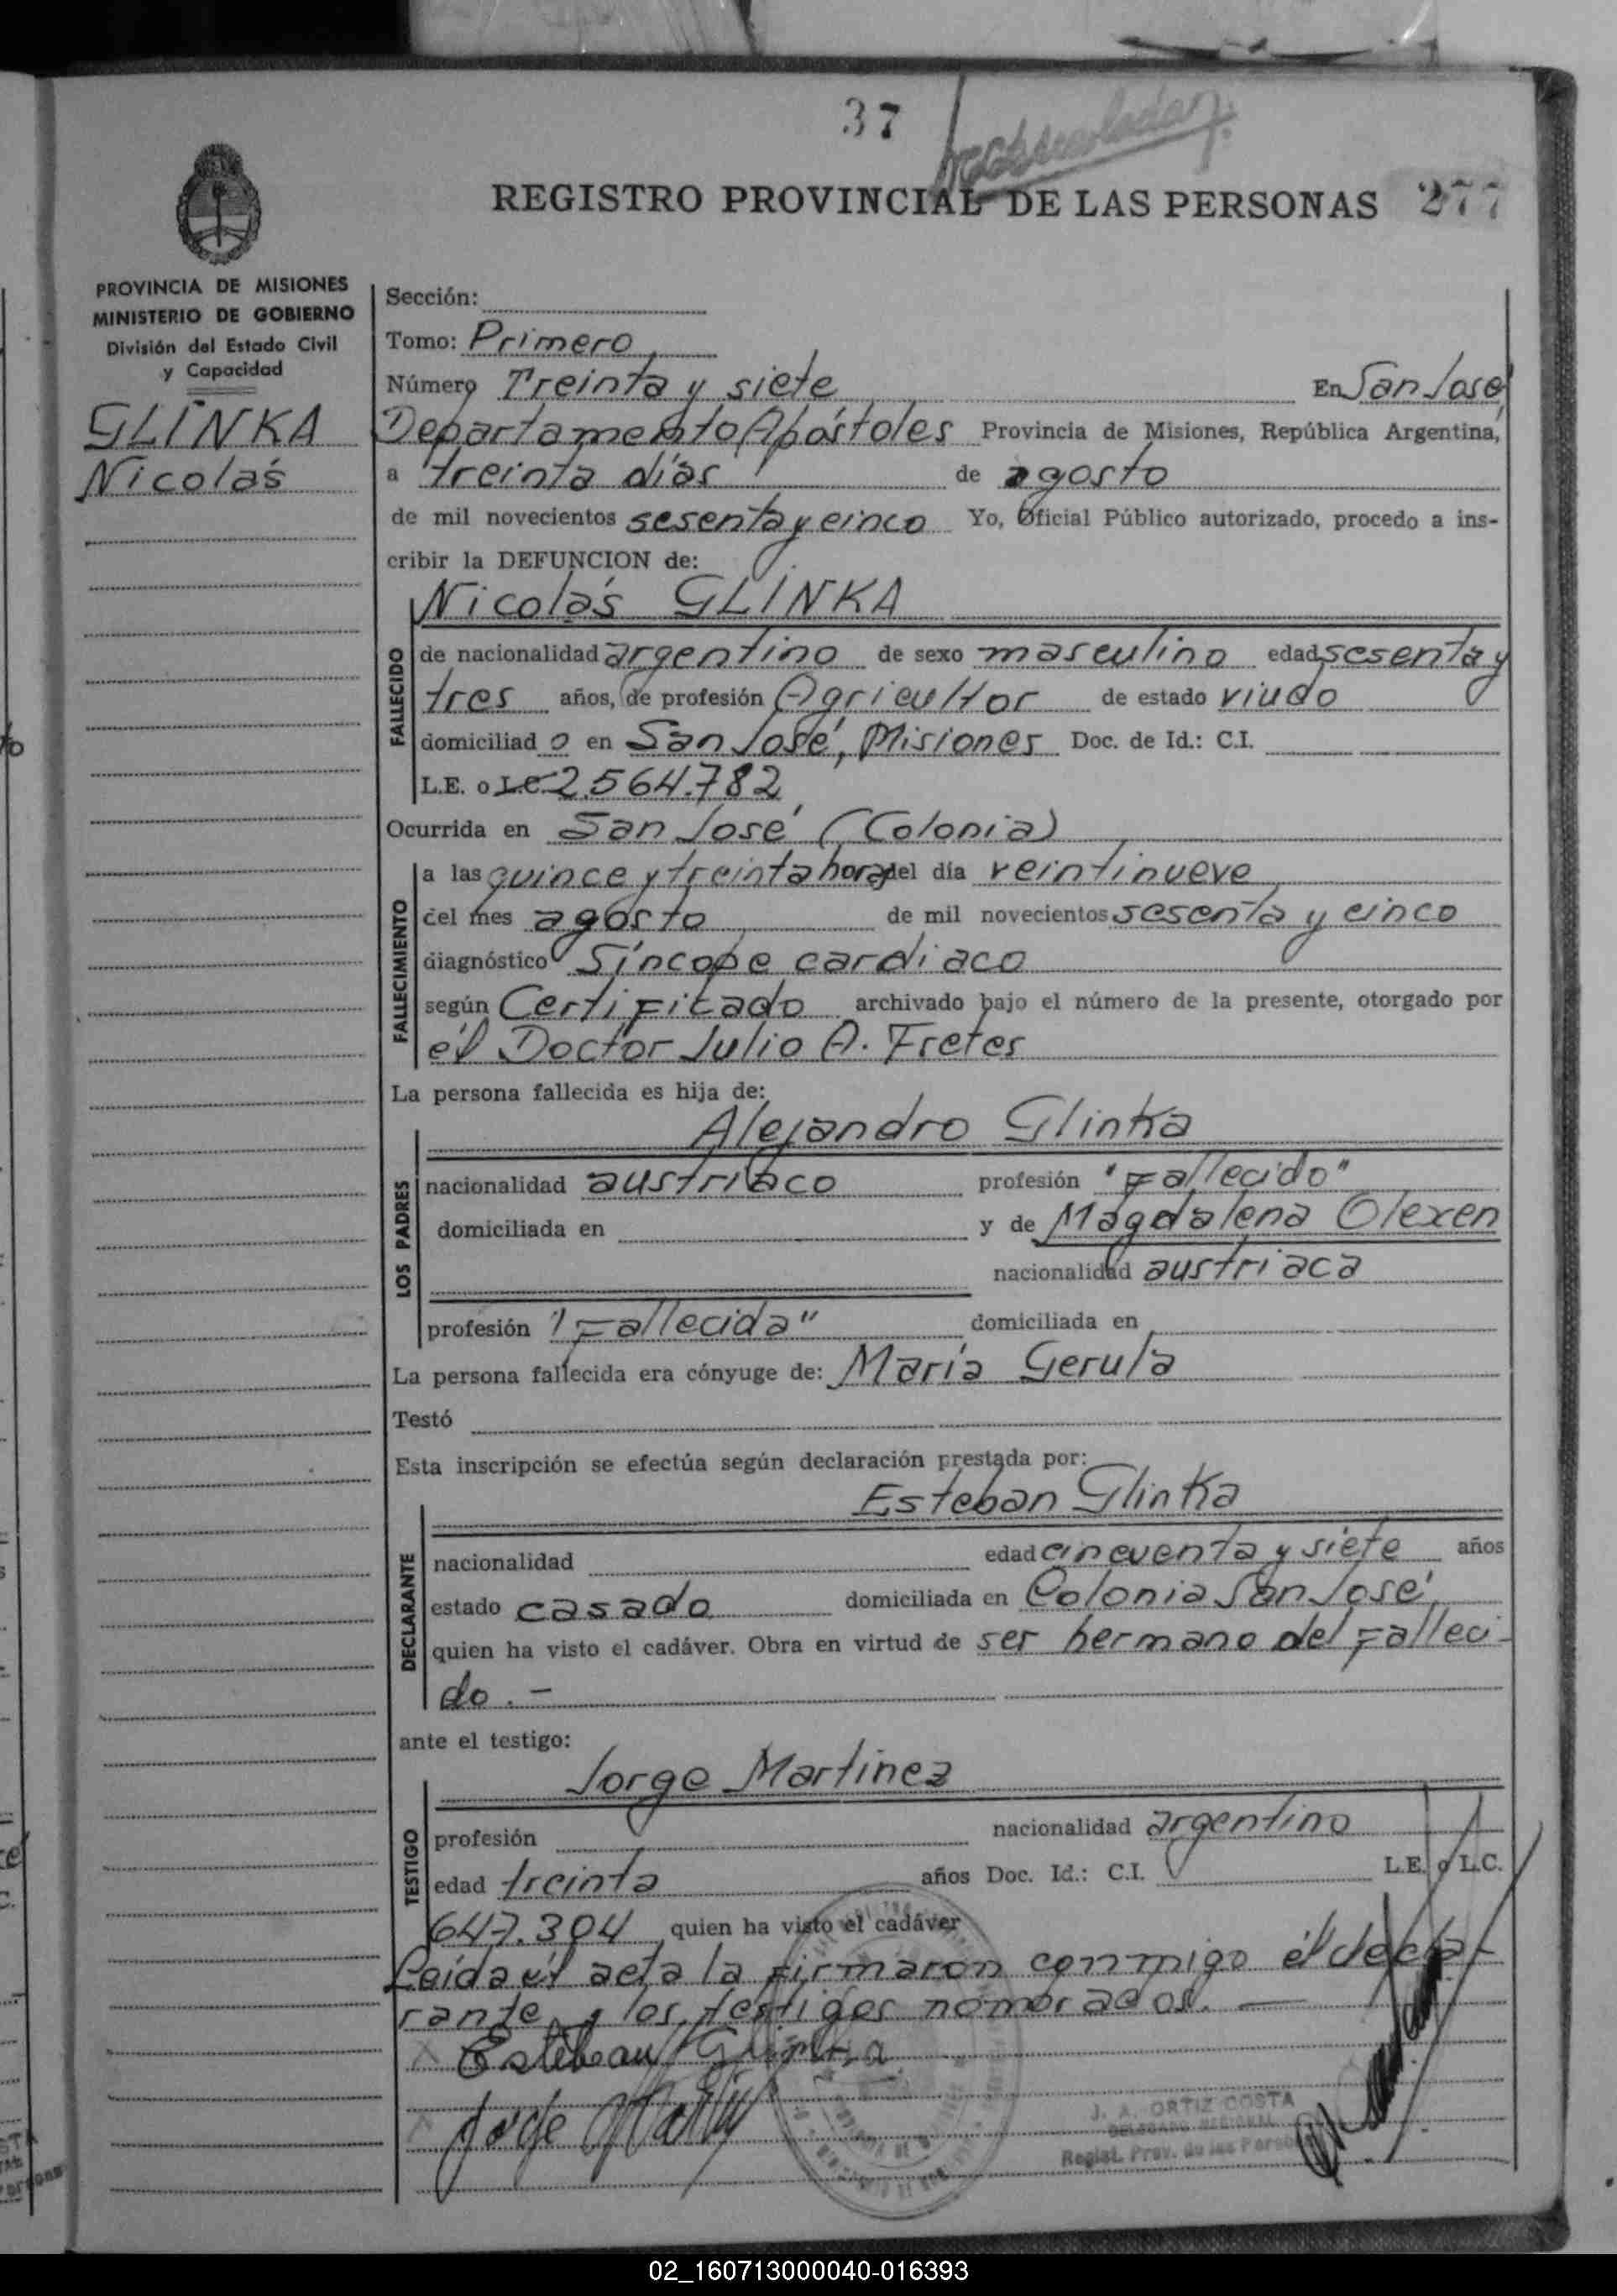 37
REGISTRO PROVINCIAL DE LAS PERSONAS 277
PROVINCIA DE MISIONES
MINISTERIO DE GOBIERNO
División del Estado Civil
y Capacidad
GLINKA
Nicolás
Sección:
Tomo: Primero
Número Treinta y siete En San José,
Departamento Apóstoles Provincia de Misiones, República Argentina,
a treinta días de agosto
de mil novecientos sesenta y cinco Yo, Oficial Público autorizado, procedo a ins-
cribir la DEFUNCION de:
Nicolás GLINKA
FALLECIDO
de nacionalidad argentino de sexo masculino edad sesenta y
tres años, de profesión Agricultor de estado viudo
domiciliad o en San José, Misiones Doc. de Id.: C.I.
L.E. o L.C. 2.564.782
Ocurrida en San José (Colonia)
FALLECIMIENTO
a las quince y treinta horas del día veintinueve
del mes agosto de mil novecientos sesenta y cinco
diagnóstico Síncope cardiaco
según Certificado archivado bajo el número de la presente, otorgado por
el Doctor Julio A. Fretes
La persona fallecida es hija de:
Alejandro Glinka
LOS PADRES
nacionalidad austriaco profesión "Fallecido"
domiciliada en y de Magdalena Olexen
nacionalidad austriaca
profesión "Fallecida" domiciliada en
La persona fallecida era cónyuge de: María Gerula
Testó
Esta inscripción se efectúa según declaración prestada por:
Esteban Glinka
DECLARANTE
nacionalidad edad cincuenta y siete años
estado casado domiciliada en Colonia San José,
quien ha visto el cadáver. Obra en virtud de ser hermano del falleci-
do.-
ante el testigo:
Jorge Martinez
TESTIGO
profesión nacionalidad argentino
edad treinta años Doc. Id.: C.I. L.E. o L.C.
647.304 quien ha visto el cadáver
Leída el acta la firmaron conmigo el decla-
rante y los testigos nombrados. —
Esteban Glinka
Jorge
J. A. ORTIZ COSTA
DELEGADO REGIONAL
Regist. Prov. de las Person
02_160713000040-016393